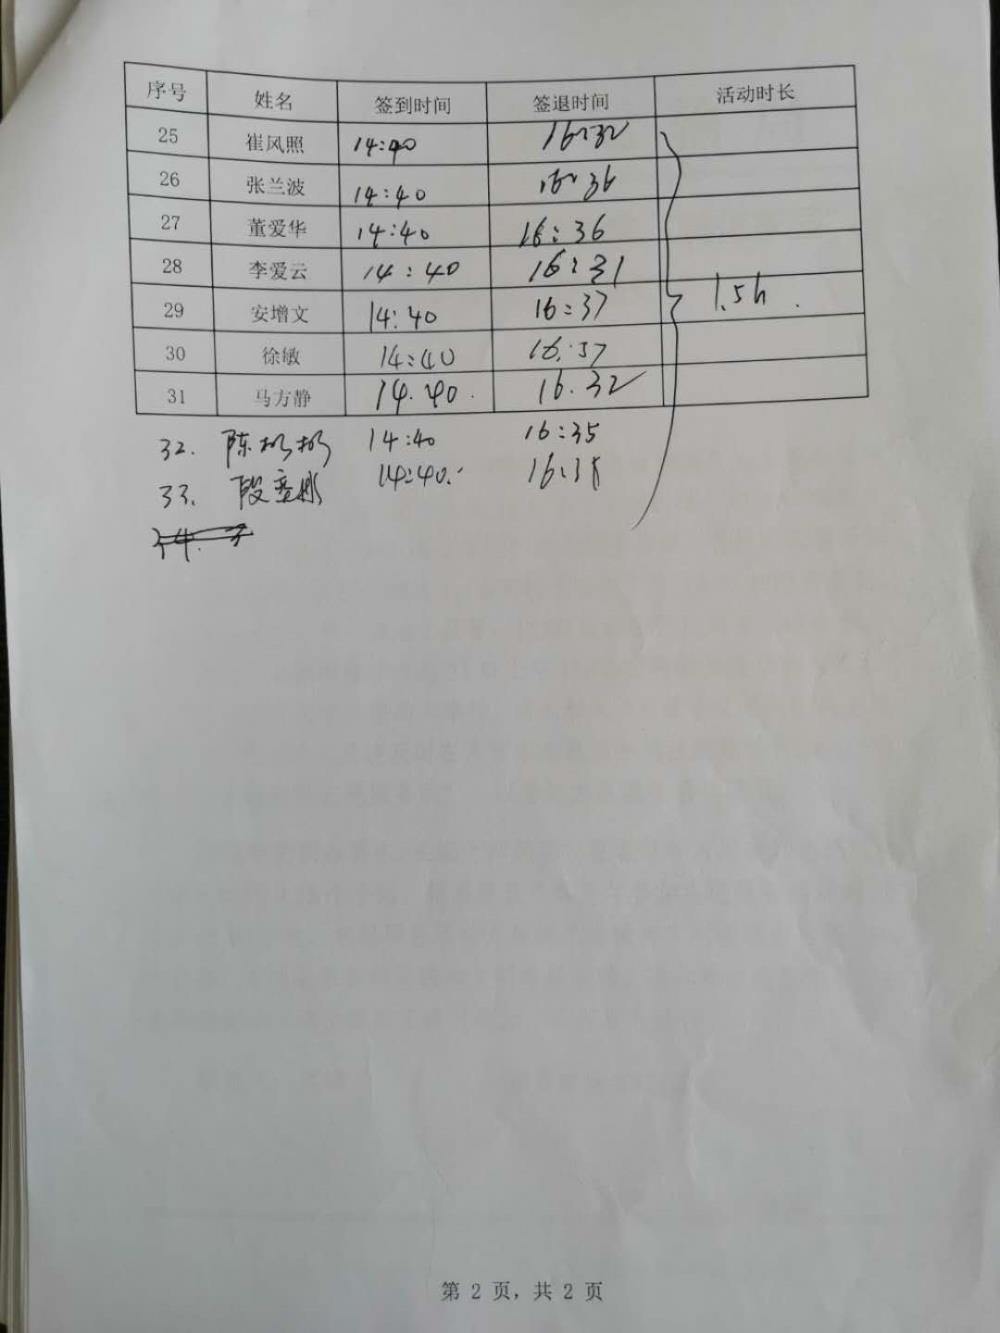 序号 姓名 签到时间 签退时间 活动时长
25 崔风照 14:40 16:32
26 张兰波 14:40 16:36
27 董爱华 14:40 16:36
28 李爱云 14:40 16:31
29 安增文 14:40 16:37
30 徐敏 14:40 16:37
31 马方静 14.40. 16.32
1.5h.
32. 陈 14:40 16:35
33. 段 14:40. 16:35
第 2 页，共 2 页